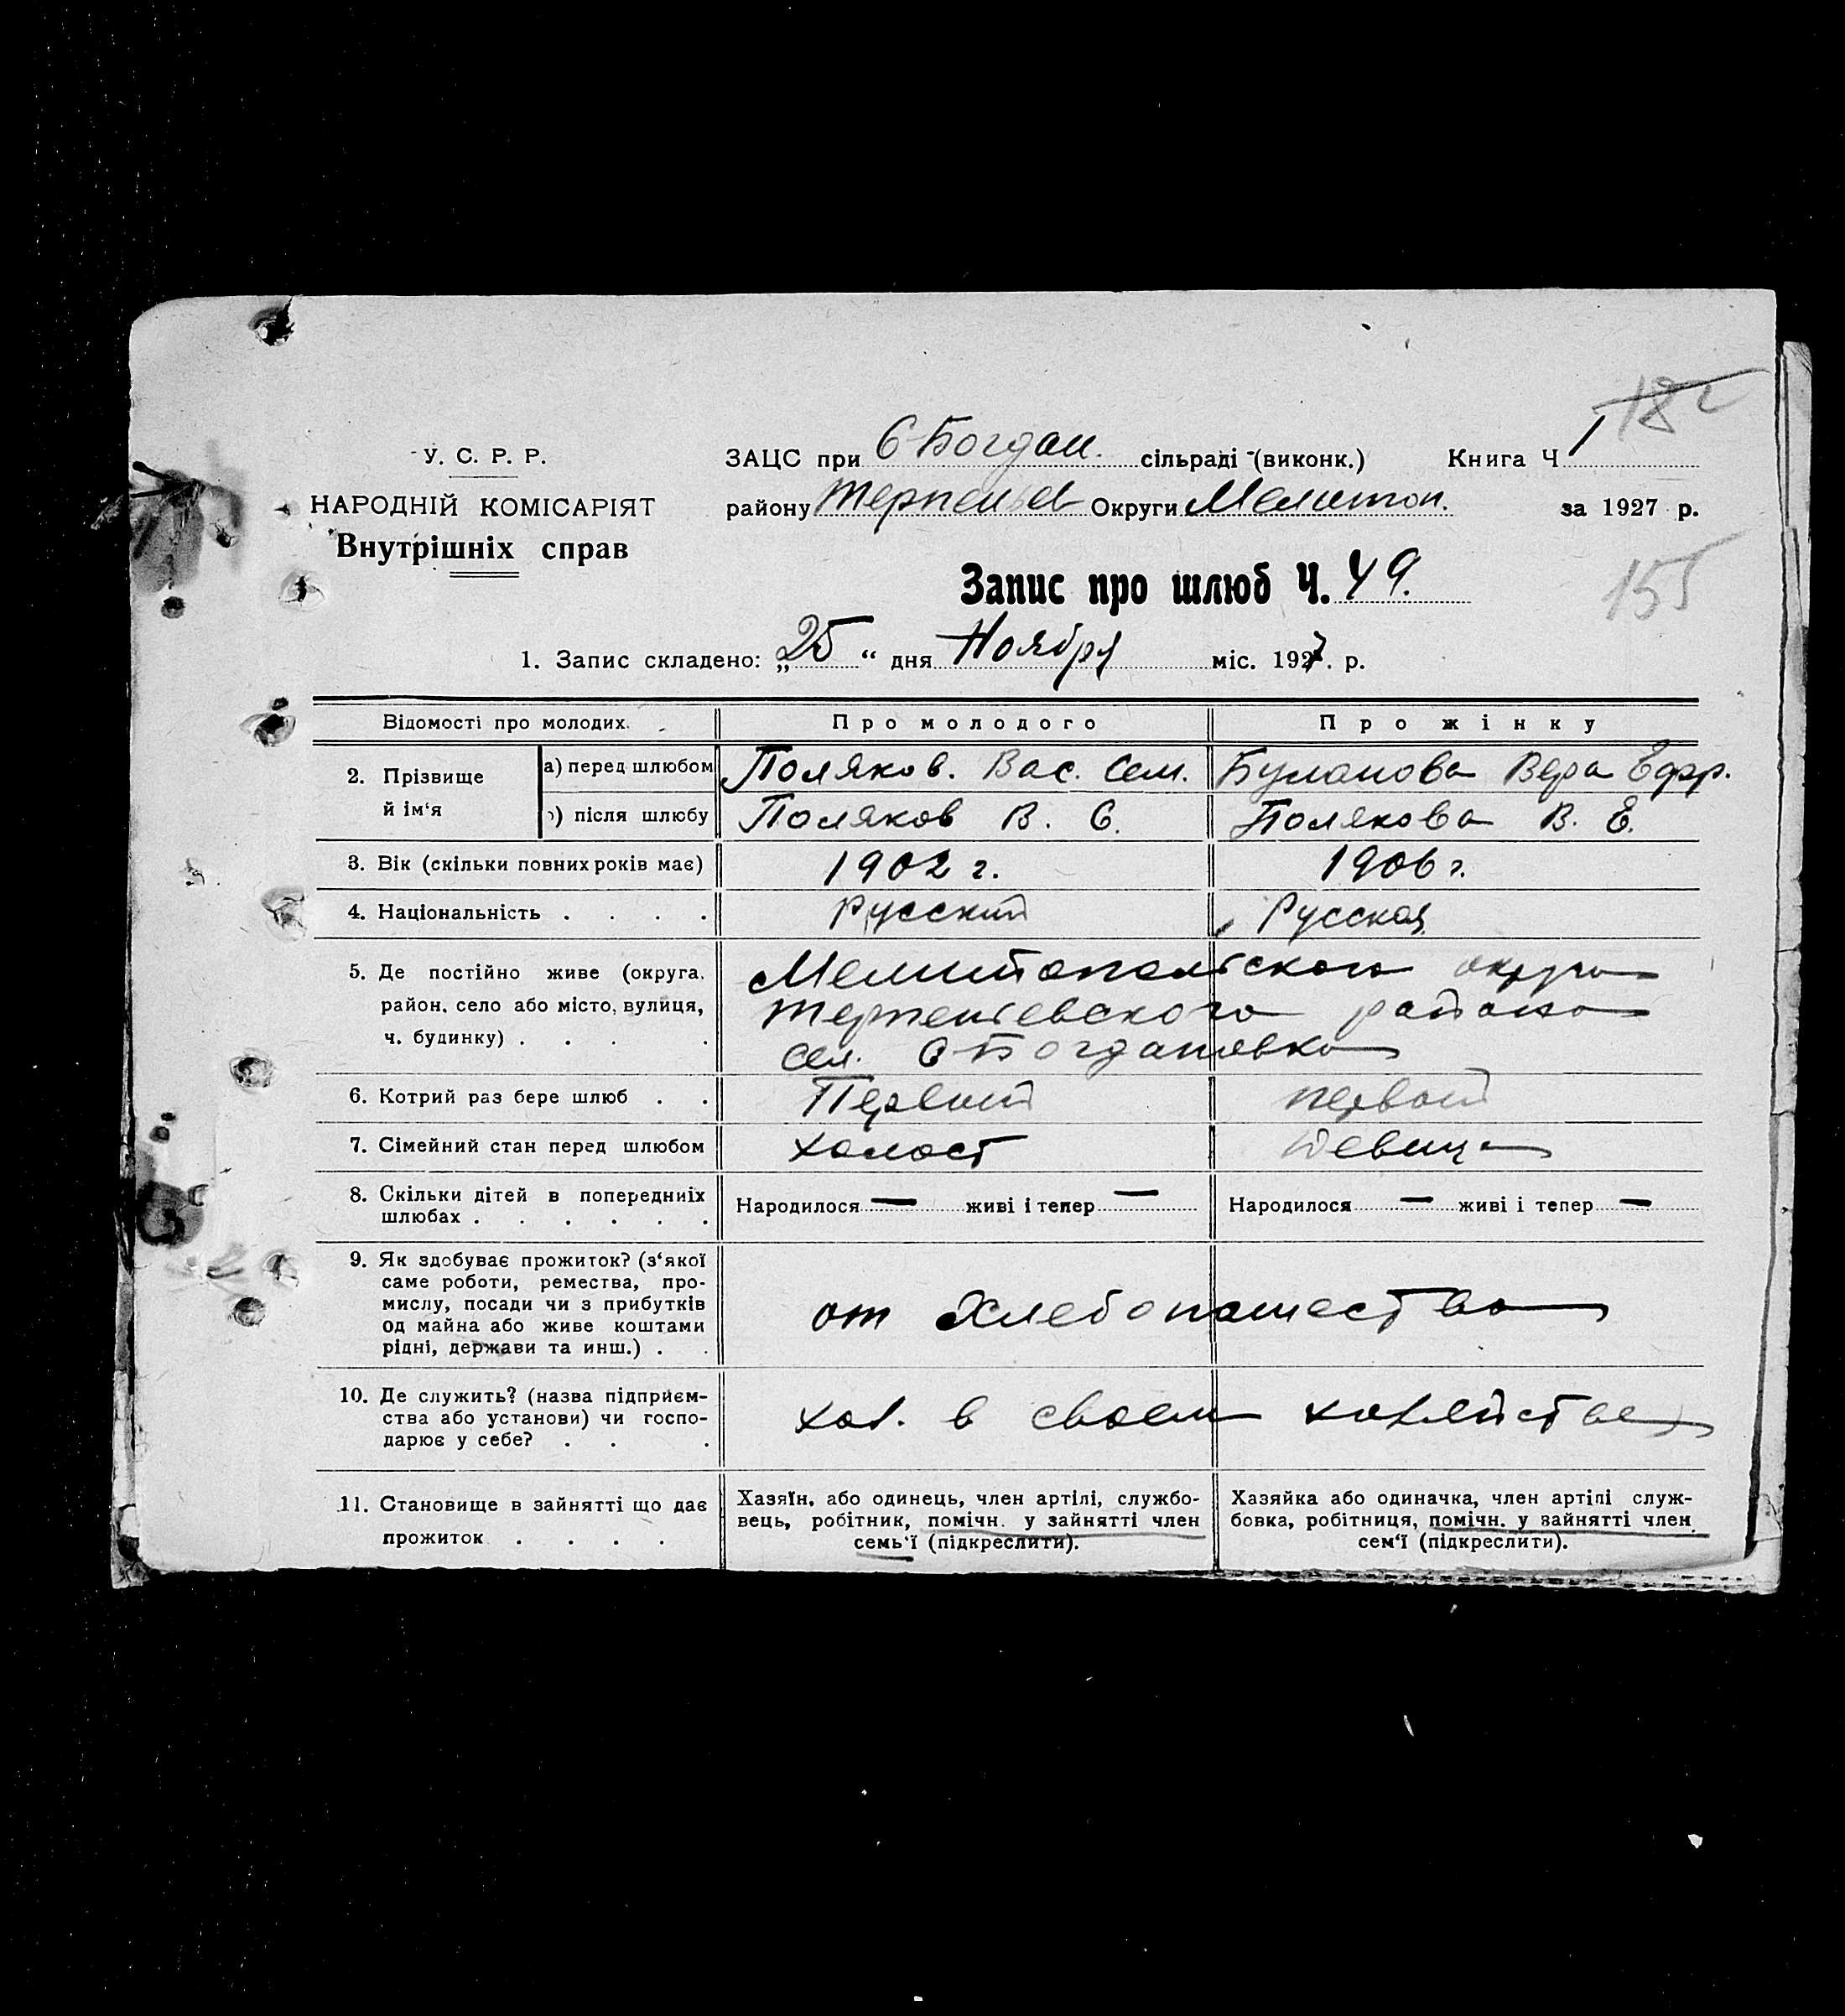 182
У. С. Р. Р.
НАРОДНІЙ КОМІСАРІЯТ
Внутрішніх справ
ЗАЦС при С-Богдан. сільраді (виконк.) Книга Ч 1
району Терпеньев Округи Мелитоп. за 1927 р.
155
Запис про шлюб Ч. 49.
1. Запис складено: „25“ дня Ноября міс. 1927. р.
Відомості про молодих. Про молодого Про жінку
2. Прізвище й ім‘я
а) перед шлюбом Поляков. Вас. Сем. Буланова Вера Ефр.
) після шлюбу Поляков В. С. Полякова В. Е.
3. Вік (скільки повних років має) 1902 г. 1906 г.
4. Національність . . . . Русский Русская
5. Де постійно живе (округа, Мелитопольского округа
район, село або місто, вулиця, Терпеньевского района
ч. будинку) . . . . сел. С-Богдановка
6. Котрий раз бере шлюб . . Первый первый
7. Сімейний стан перед шлюбом холост девица
8. Скільки дітей в попередниіх
шлюбах . . . . . . Народилося — живі і тепер — Народилося — живі і тепер —
9. Як здобуває прожиток? (з‘якої
саме роботи, ремества, про-
мислу, посади чи з прибутків
од майна або живе коштами
рідні, держави та инш.) . . от хлебопашества
10. Де служить? (назва підприєм-
ства або установи) чи госпо-
дарює у себе? . . . хоз. в своем хозяйстве
11. Становище в зайнятті що дає
прожиток . . . .
Хазяїн, або одинець, член артілі, службо-
вець, робітник, помічн. у зайнятті член
семь‘ї (підкреслити).
Хазяйка або одиначка, член артілі служ-
бовка, робітниця, помічн. у зайнятті член
сем‘ї (підкреслити).